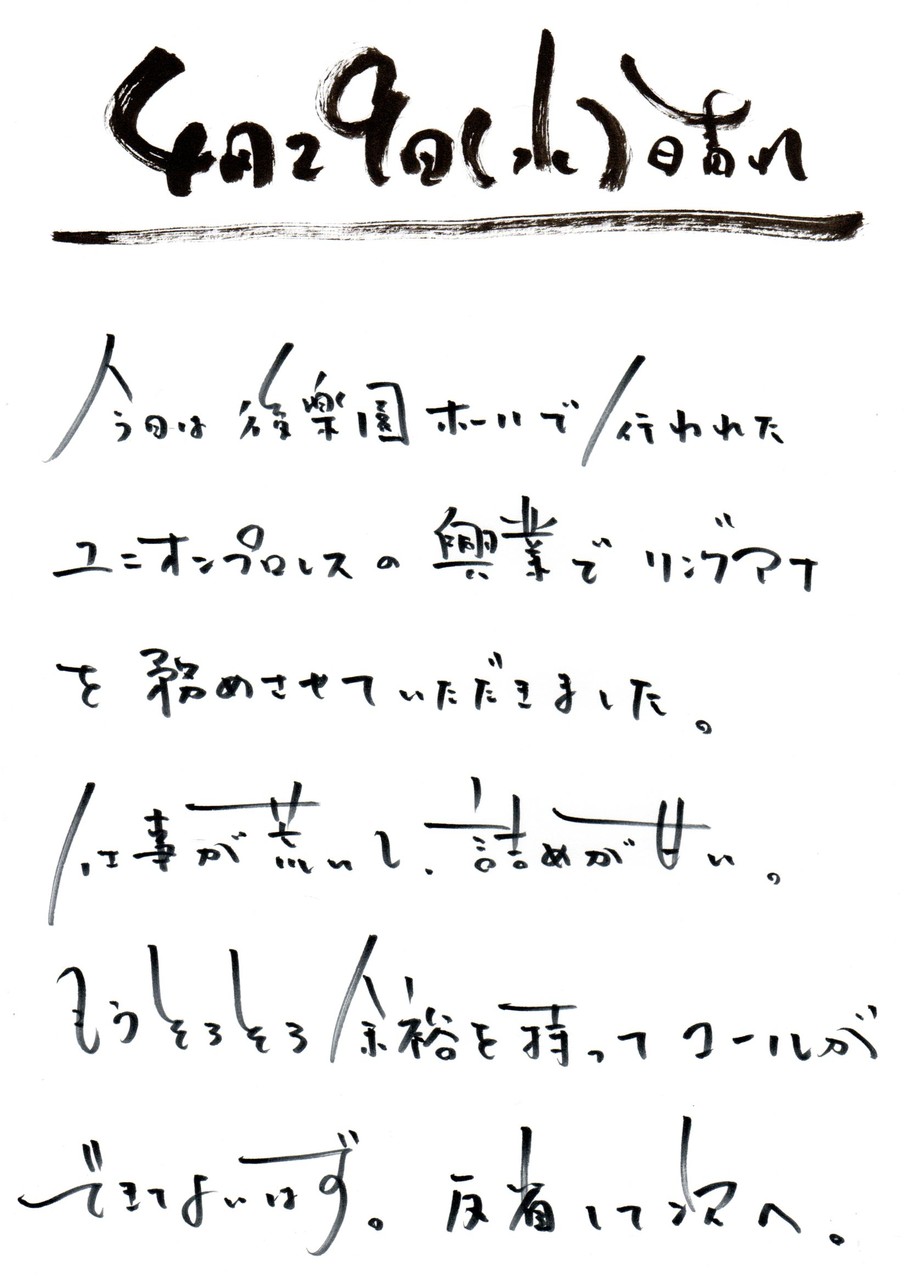 4月29日(水)晴れ
今日は後楽園ホールで行われた
ユニオンプロレスの興業でリングアナ
を務めさせていただきました。
仕事が荒いし、詰めが甘い。
もうそろそろ余裕を持ってコールが
できてよいはず。反省して次へ。